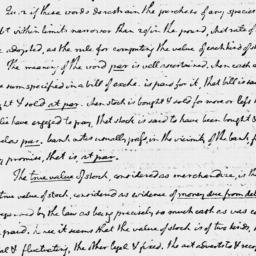 Qu. 2 if these words do restrain the purchases of any species
bt within limits narrower than 20/ in the pound, that rate of
be adopted, as the rule for computing the value of each kind of st
The meaning of the word par is well ascertained. when each a
the sum specified in a bill of excha. is paid for it, that bill is sai
ght & sold at par. when stock is bought & sold for more or less t
blic have engaged to pay, that stock is said to have been bought &
below par. bank notes usually pass, in the vicinity of the bank, f
ey promise, that is, at par.
The true value of stock, considered as merchandize, is th
true value of stock, considered as evidence of money due from deb
by the law as being precisely so much cash as was
paid. hence it seems that the value of stock is of two kinds,
al & fluctuating, the other legal & fixed. the act adverts to & reco